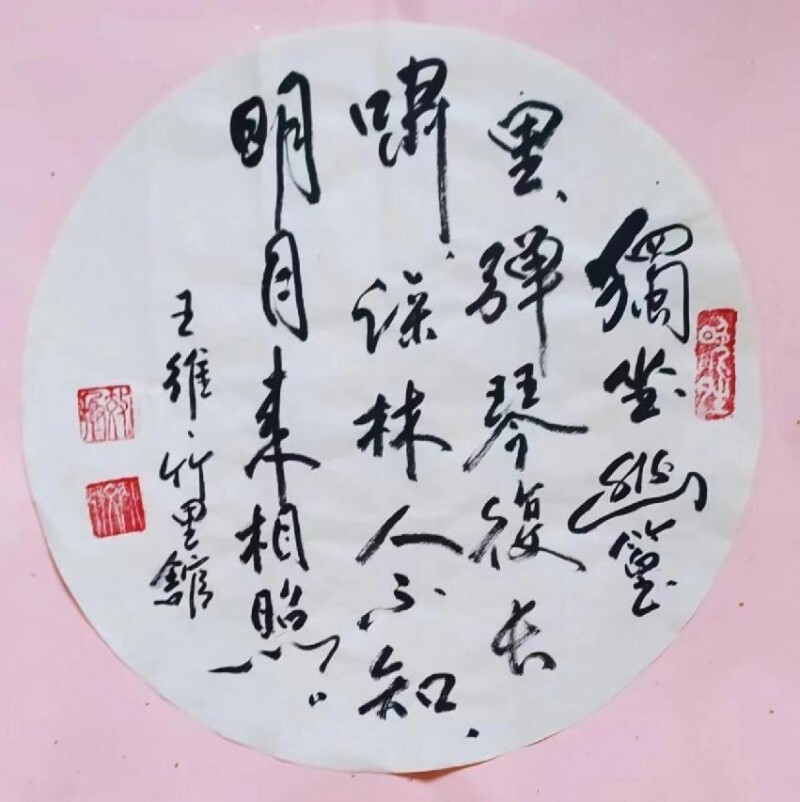 獨坐幽篁
里、彈琴復長
嘯、深林人不知、
明月来相照。
王維、竹里館